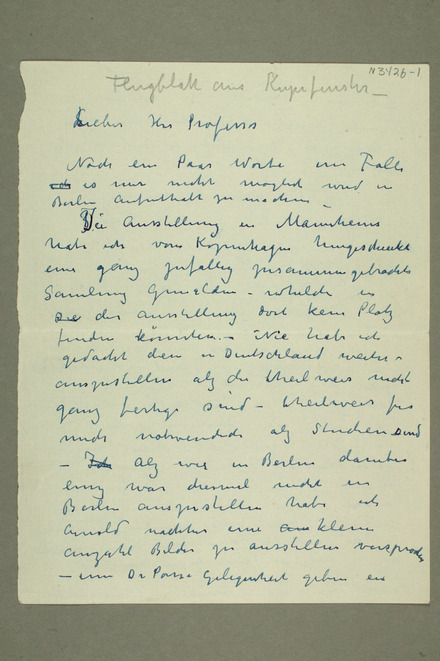 N 3426-1
Flugblatt aus Kupfenster
Lieber Herr Professor
Noch ein Paar Worte im Falle
es mir nicht möglich wird in
Berlin Aufenthalt zu machen –
Die Ausstellung in Mannheim
habe ich von Kopenhagen hingeschickt
eine ganz zufällig zusammengebrachte
Samlung Gemälden – welche in
die der Ausstellung dort kein Platz
finden könnten. – Nie habe ich
gedacht dem in Deutschland weiter
auszustellen als die theilweis nicht
ganz fertige sind – theilweis für
mich notwendich als Studien sind
– Ich Als wir in Berlin darüber
einig war diesmal nicht in
Berlin auszustellen habe ich
Arnold nachher eine kleine
anzahl Bilder zu ausstellen versprochen
– um Dr Posse Gelegenheit geben ein